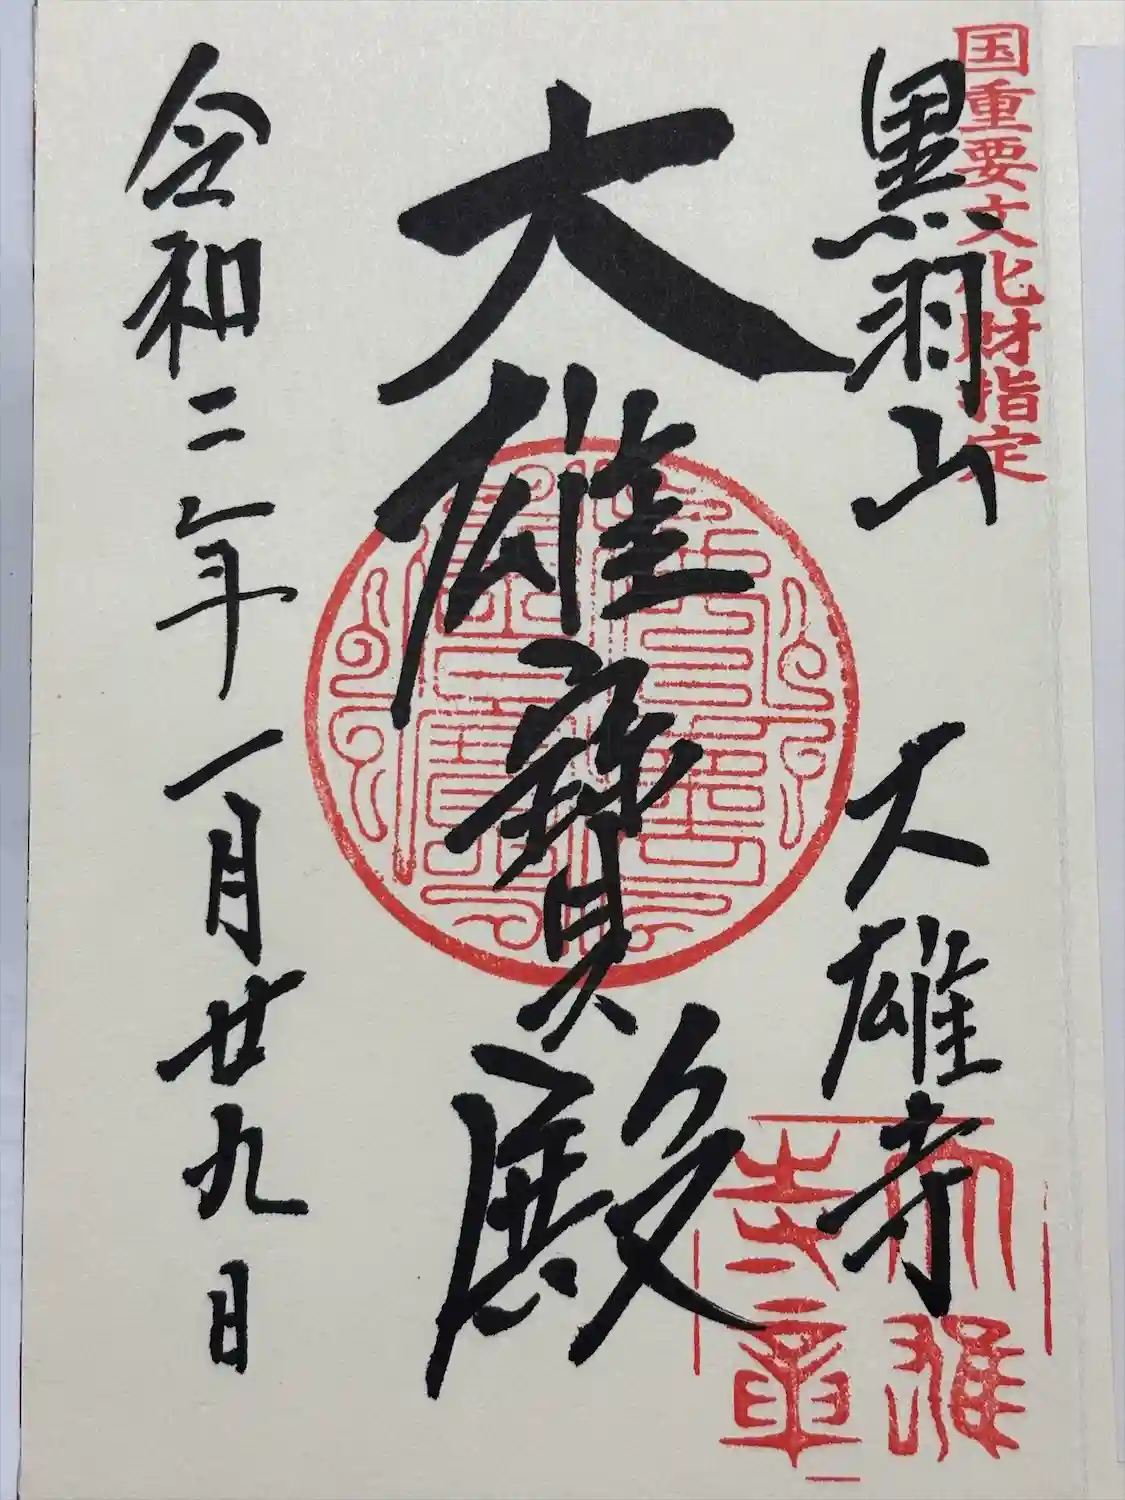 国重要文化財指定
黒羽山　大雄寺
大雄寶殿
令和二年一月廿九日
大雄
寺章